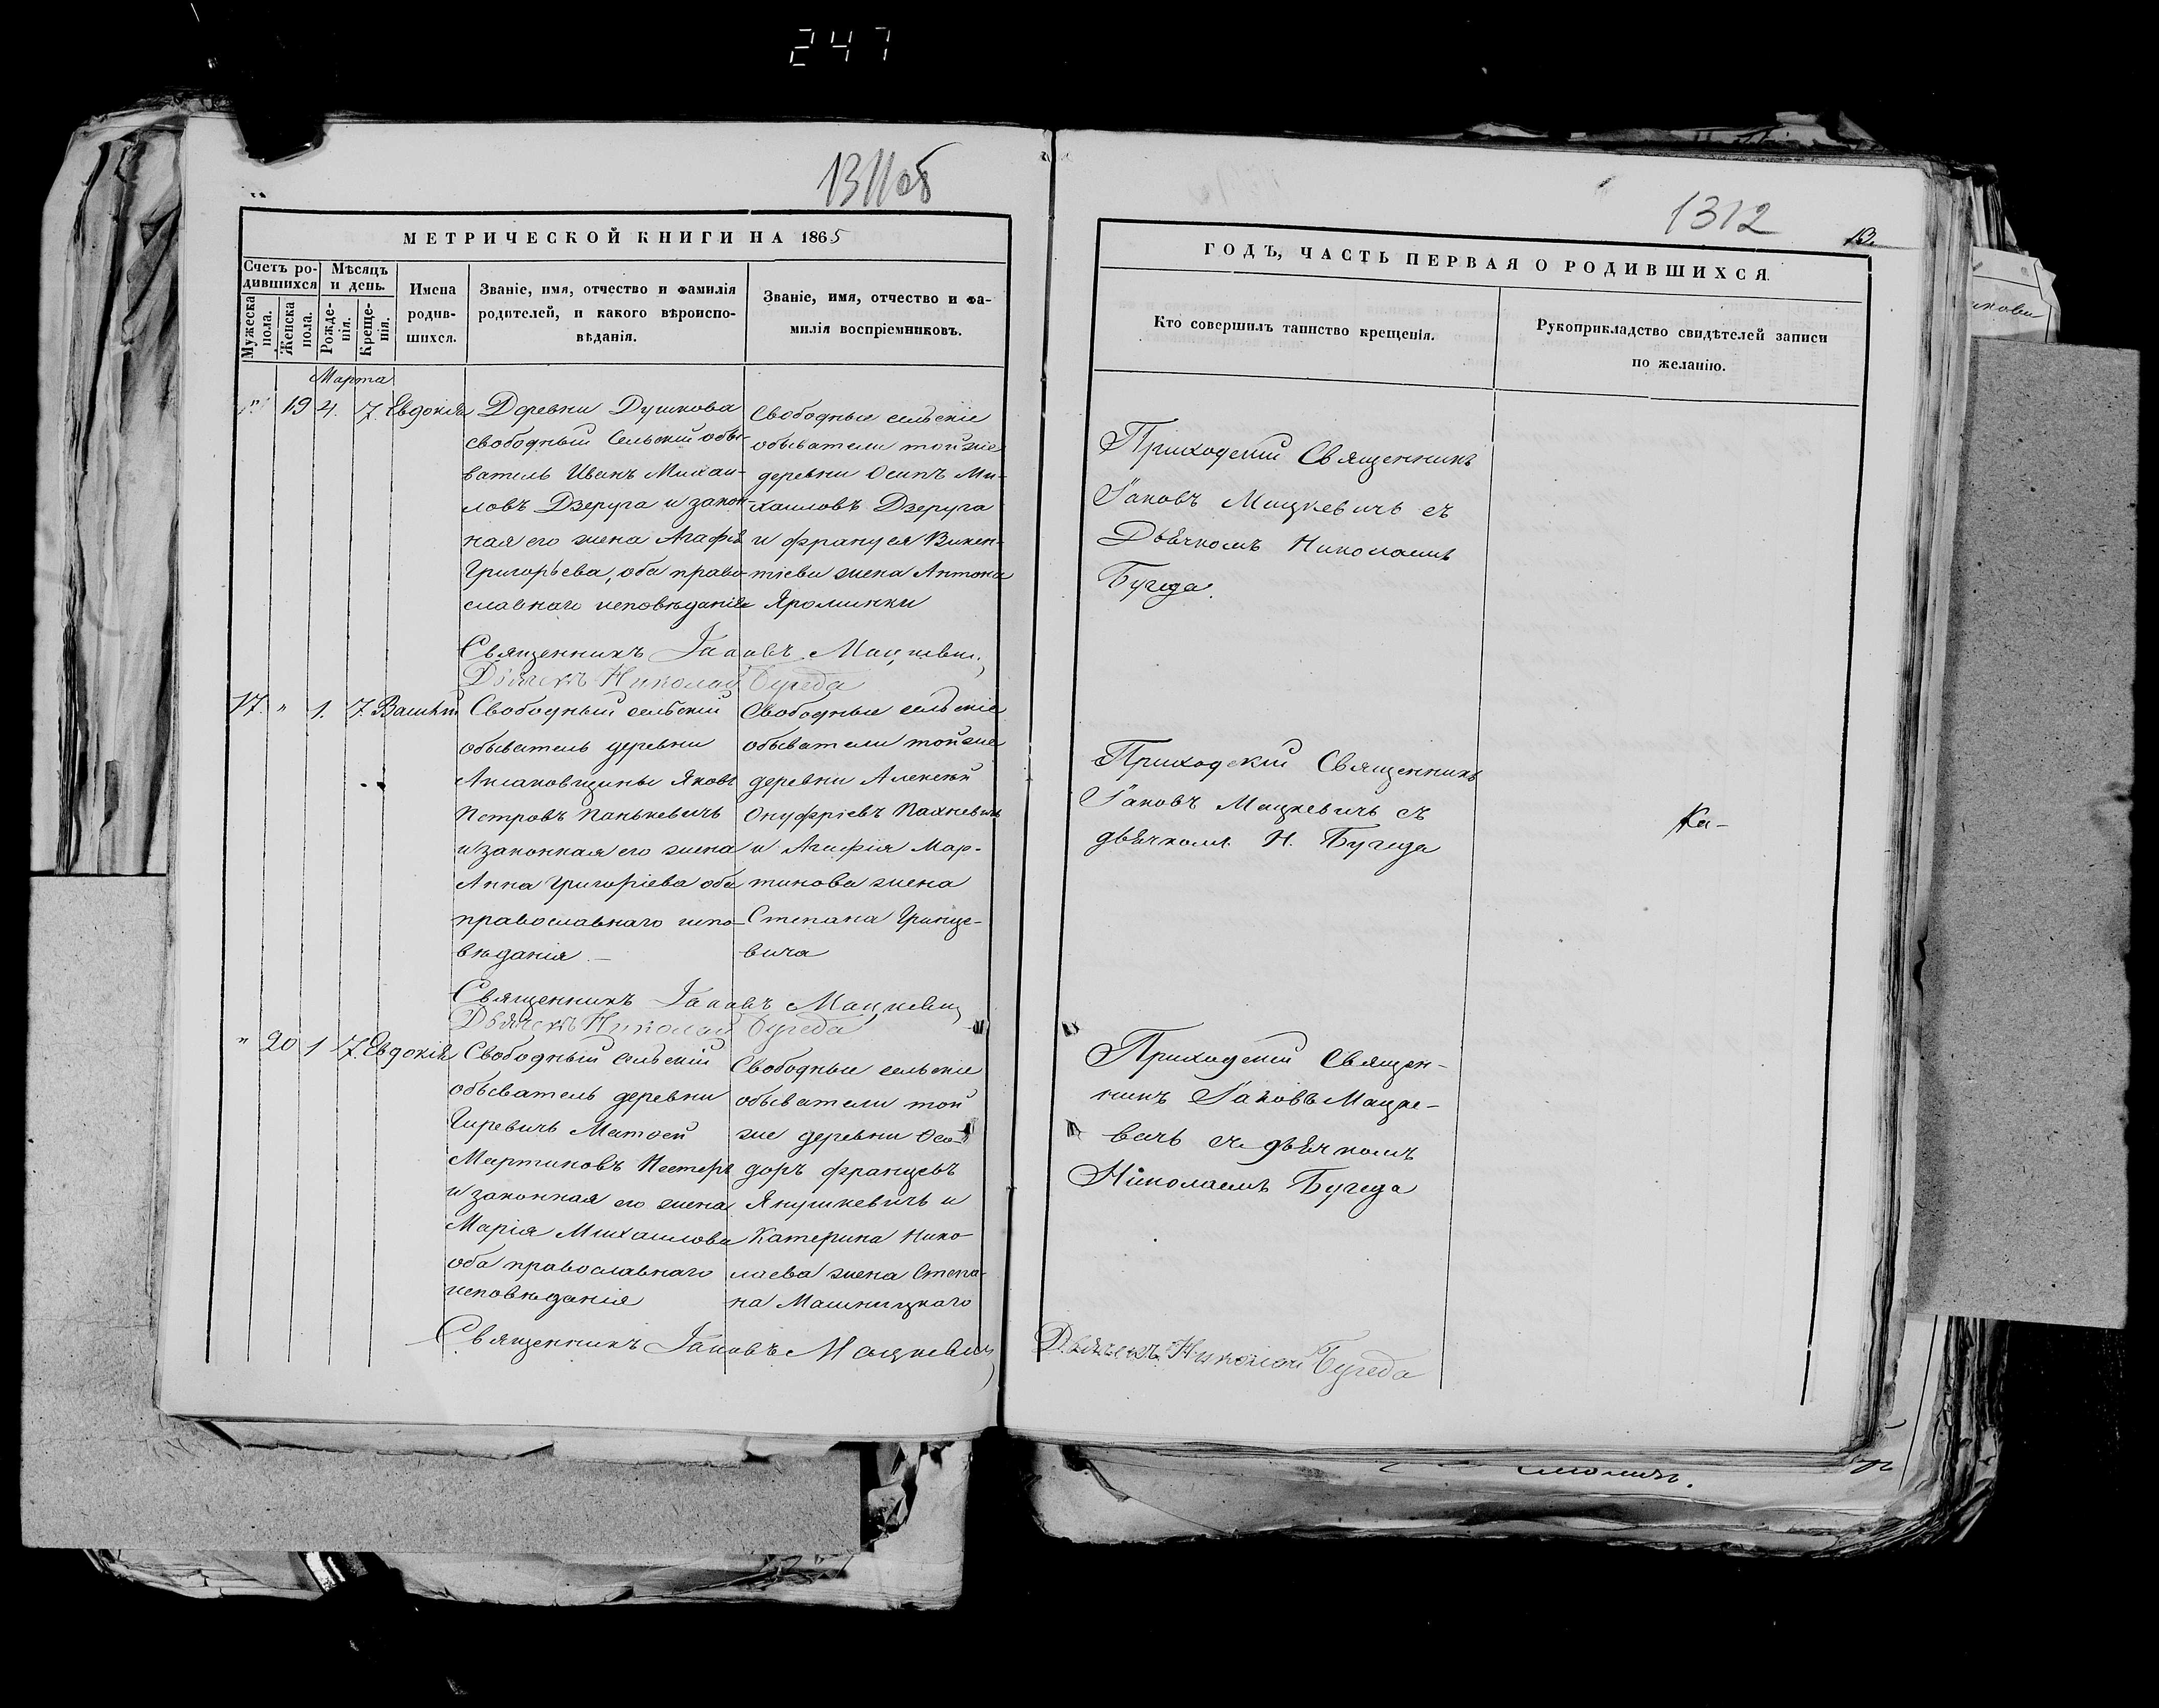 247
1311об
МЕТРИЧЕСКОЙ КНИГИ НА 1865
Счетъ ро-
дившихся
Мѣсяцъ
и день.
Мужеска
пола.
Женска
пола.
Рожде-
нія.
Креще-
нія.
Имена
родив-
шихся.
Званіе, имя, отчество и фамилія
родителей, и какого вѣроиспо-
вѣданія.
Званіе, имя, отчество и фа-
милія воспріемниковъ.
Марта
" 19 4. 7. Евдокія
Деревни Душкова
свободный сельскій обы-
ватель Иванъ Михаи-
ловъ Дзеруга и закон-
ная его жена Агафія
Григорьева, оба право-
славнаго исповѣданія
Свободные сельскіе
обыватели той же
деревни Осипъ Ми-
хаиловъ Дзеруга
и Франуся Викен-
тіева жена Антона
Яроминки
Священникъ Іаковъ Мацкевич
Дьячекъ Николай Бугеда
17. " 1. 7. Василій
Свободный сельскій
обыватель деревни
Аксаковщины Яковъ
Петровъ Панькевичъ
и законная его жена
Анна Григоріева оба
православнаго испо-
вѣданія
Свободные сельскіе
обыватели той же
деревни Алексѣй
Онуфріевъ Пахневичъ
и Агафія Мар-
тинова жена
Степана Гринце-
вича
Священникъ Іаковъ Мацкевич
Дьячекъ Николай Бугеда
" 20 1 7. Евдокія
Свободный сельскій
обыватель деревни
Гиревичъ Матѳей
Мартиновъ Нестеръ
и законная его жена
Марія Михаилова
оба православнаго
исповѣданія
Свободные сельскіе
обыватели той
же деревни
доръ Францевъ
Янушкевичъ и
Катерина Нико-
лаева жена Степа-
на Машницкаго
Священникъ Іаковъ Мацкевич
1312
13.
ГОДЪ, ЧАСТЬ ПЕРВАЯ О РОДИВШИХСЯ.
Кто совершилъ таинство крещенія.
Рукоприкладство свидѣтелей записи
по желанію.
Приходскій Священникъ
Іаковъ Мацкевичъ съ
Дьячкомъ Николаемъ
Бугеда.
Приходскій Священникъ
Іаковъ Мацкевичъ съ
дьячкомъ Н. Бугеда
Ка-
Приходскій Священ-
никъ Іаковъ Мацке-
вичъ съ дьячкомъ
Николаемъ Бугеда
Дьячекъ Николай Бугеда